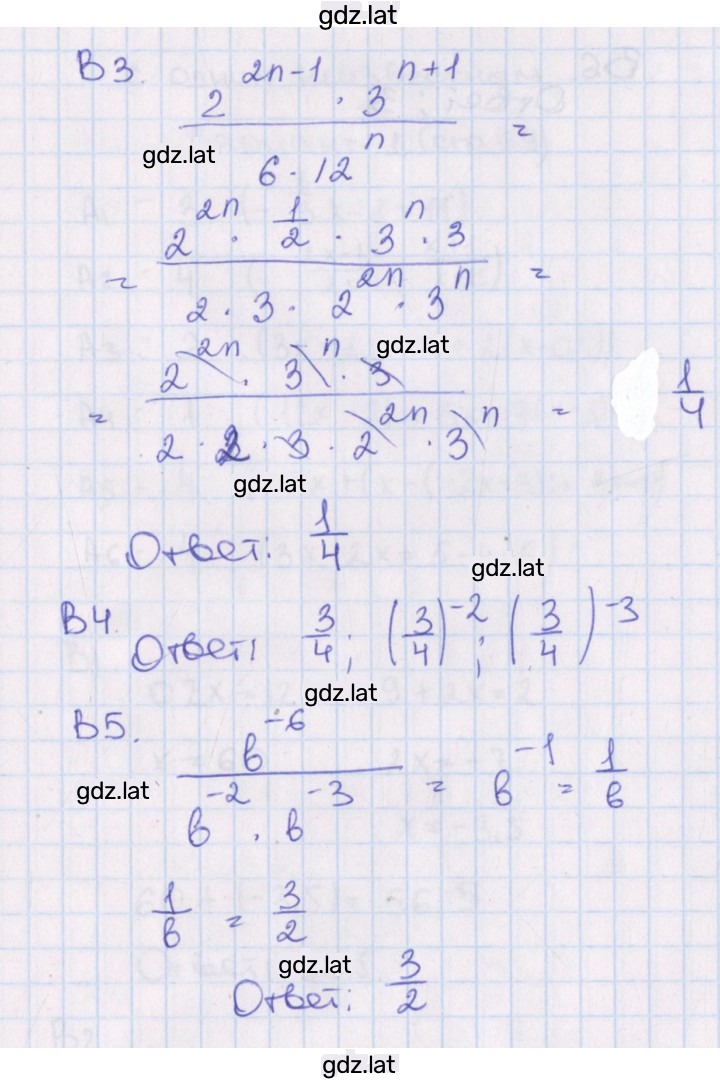 gdz.lat
В3. 2^{2n-1} · 3^{n+1}
gdz.lat
6 · 12^n =
= 2^{2n} · 1/2 · 3^n · 3
2 · 3 · 2^{2n} · 3^n =
gdz.lat
= 2^{2n} · 3^n · 3
2 · 2 · 3 · 2^{2n} · 3^n = 1/4
gdz.lat
Ответ: 1/4
gdz.lat
В4.
Ответ: 3/4; (3/4)^{-2}; (3/4)^{-3}
gdz.lat
В5. в^{-6}
gdz.lat
в^{-2} · в^{-3} = в^{-1} = 1/в
1/в = 3/2
gdz.lat
Ответ: 3/2
gdz.lat